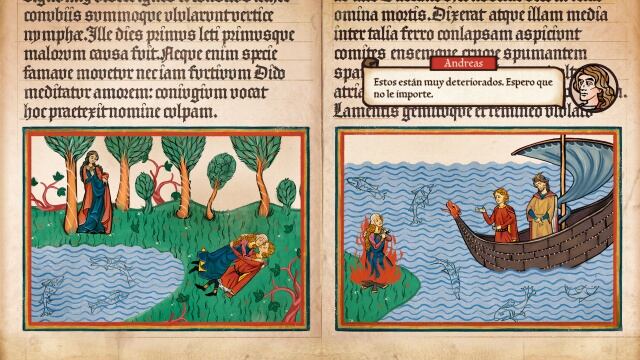 convbiis svmmoqve vlvlarvnt vertice
nymphæ. Ille dies primvs leti primvsqve
malorvm cavsa fvit. Neqve enim specie
famave movetvr nec iam fvrtivvm Dido
meditatvr amorem: conivgivm vocat
hoc praetexit nomine cvlpam.
omina mortis. Dixerat atqve illam media
inter talia ferro conlapsam aspicivnt
comites ensemqve crvore spvmantem
Lamentis gemitvqve et femineo vlvlatv
Andreas
Estos están muy deteriorados. Espero que
no le importe.